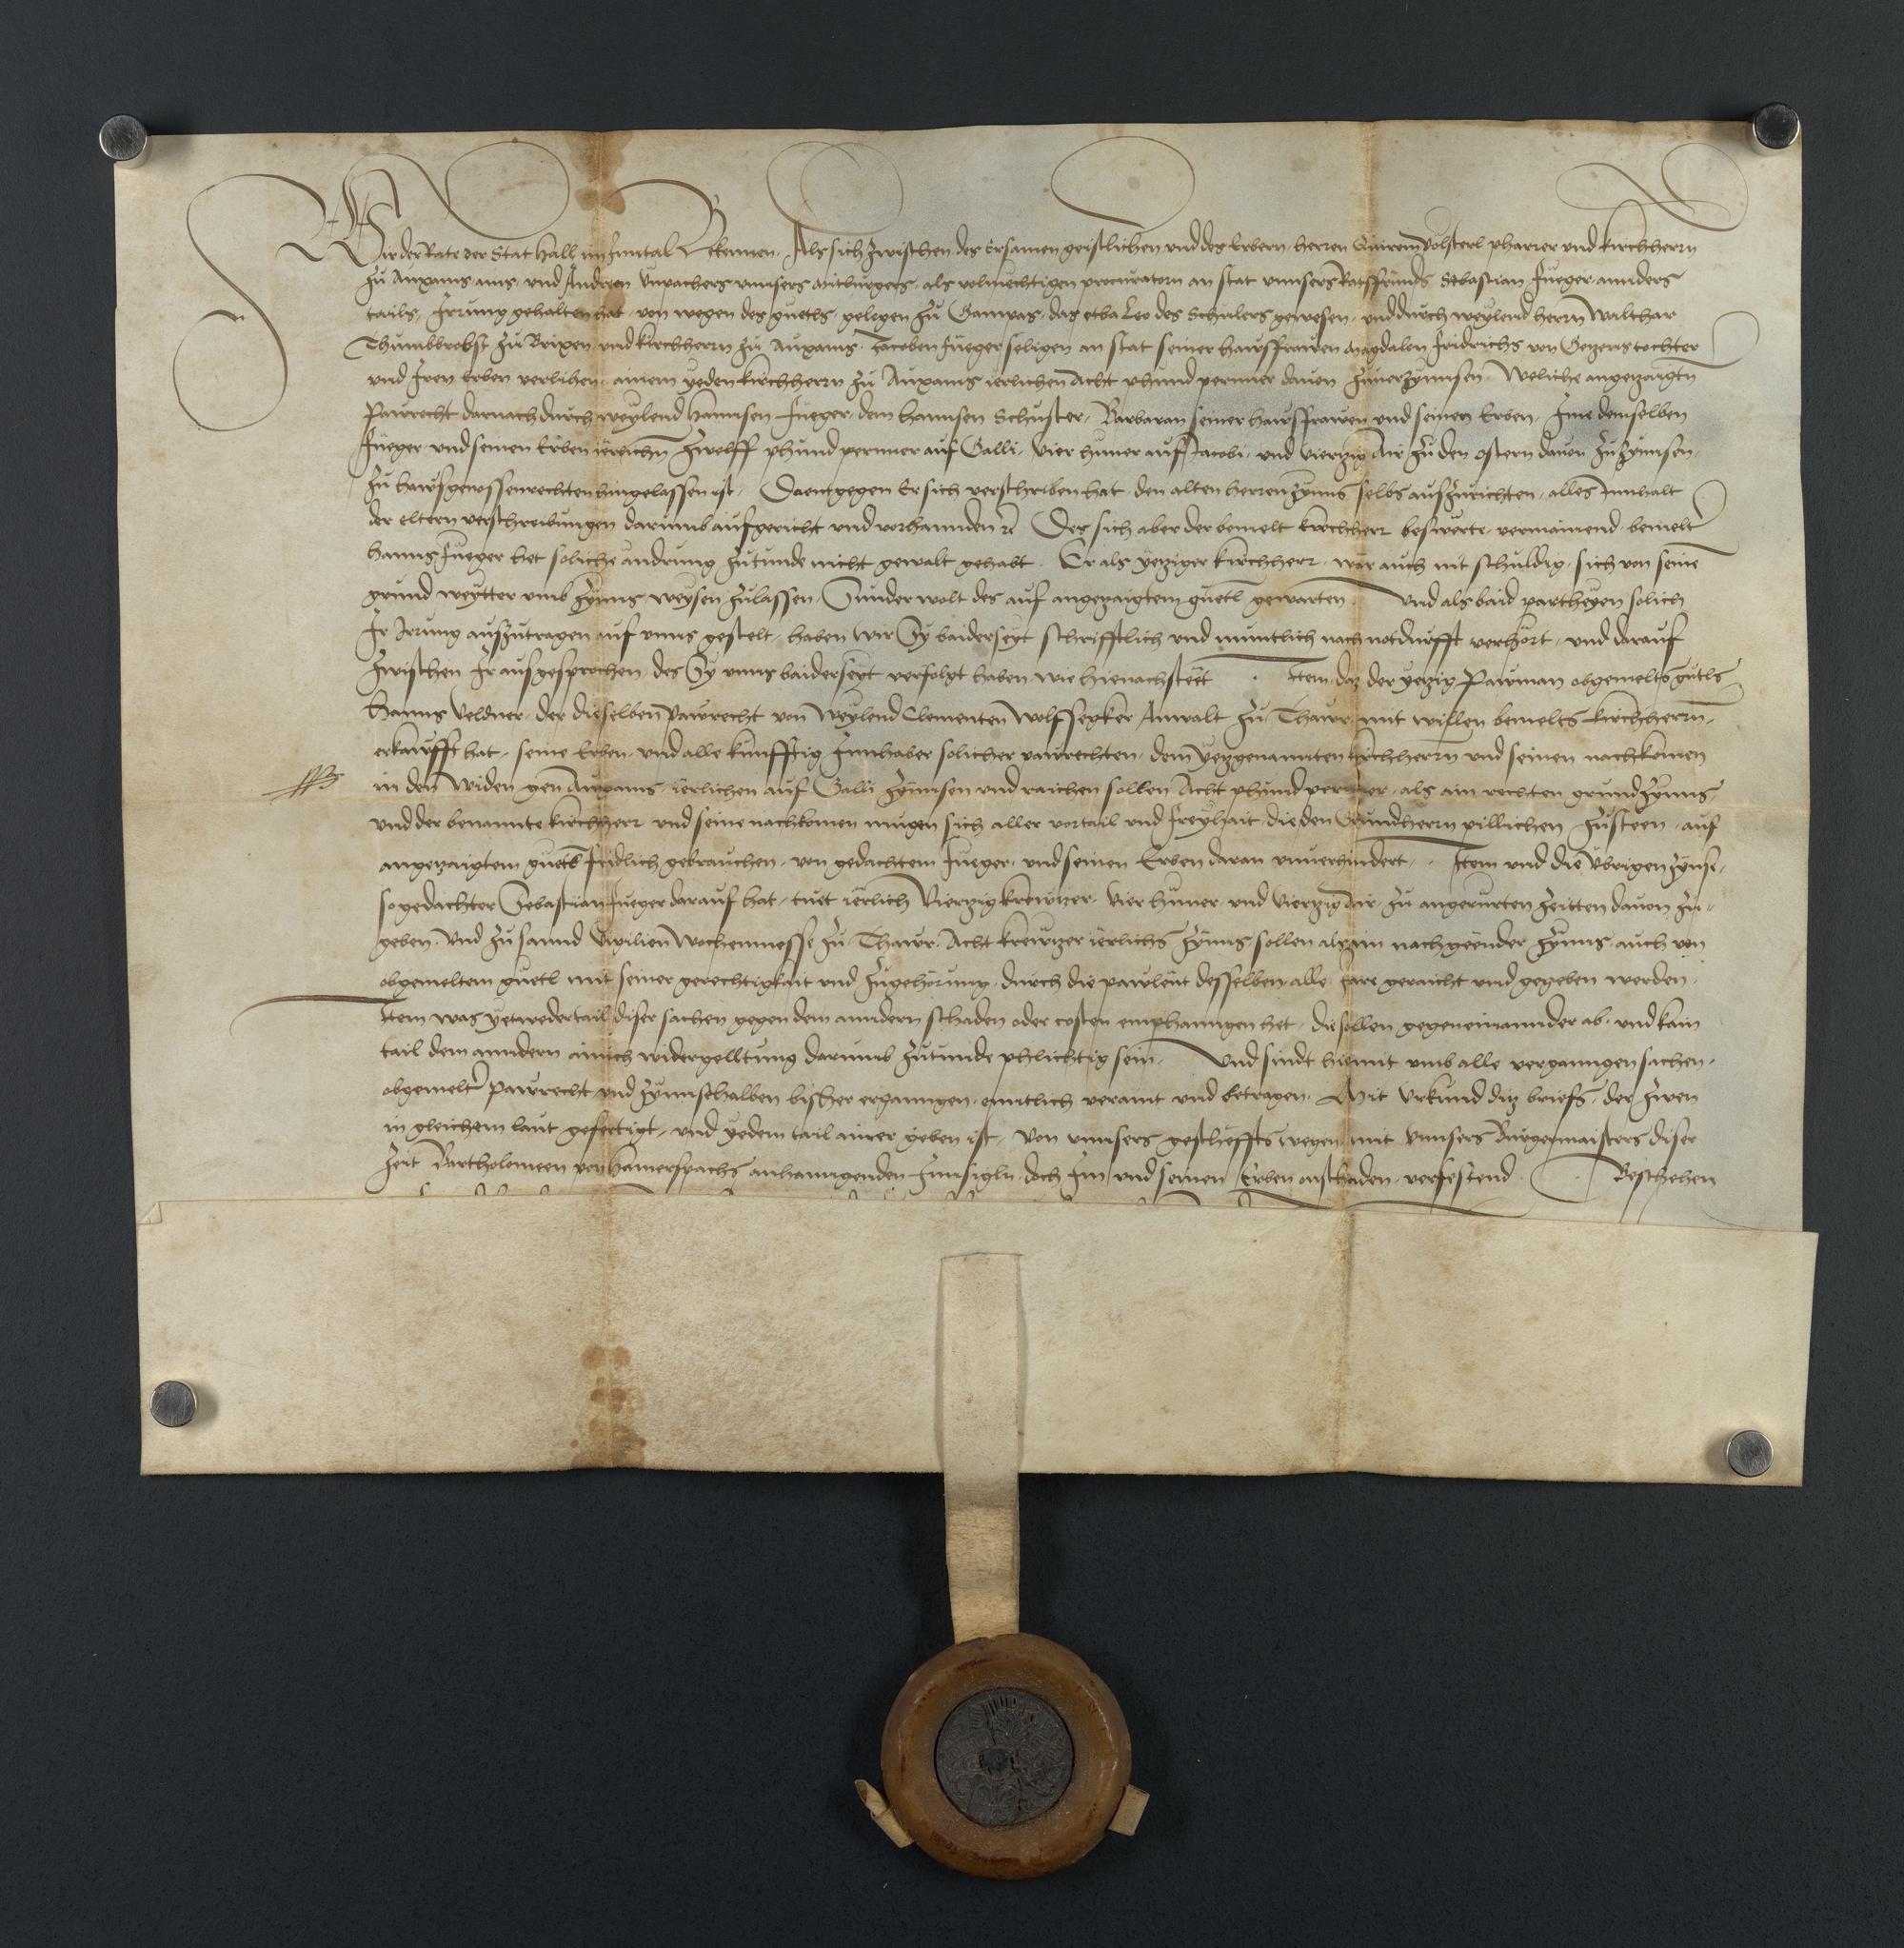 Wir der Rate der Stat Hall im Inntal Bekennen. Als sich zwischen des Ersamen geistlichen und des Erbern herren Quirein Völsterl pharrer und kirchherrn
zu Auxams ains, und Andreen unnsers mitburgers, als volmechtigen procuratorn an stat unnsers Ratsfrunds Sebastian Fueger annders
tails, Irrung gehalten hat, von wegen des guetls, gelegen zu Gampas, das etba Leo des Schulers gewesen, und durch weylend herrn Walthar
Thumbbrobst zu Brixen und kirchherrn zu Auxams, Jacoben Fueger seligen an stat seiner hawsfrawen Magdalen Fridrichs von Gerens tochter
und Iren Erben verlihen, ainem yeden kirchherrn zu Auxams ierlichen Acht phund perner davon zuverzynnsen. Weliche angezaigtn
Pawrecht darnach durch weylend Hannsen Fueger, dem Hannsen Schuster, Barbaran seiner hawsfrawen und seinen Erben, Ime demselben
Fueger und seinen Erben ierlichn Zwelff phund perner auf Galli, vier huner auf Jacobi, und vierzig Air zu den ostern davon zuzynnsen,
zu hawsgenossenrechten hingelassen ist, Daentgegen Er sich verschriben hat, den alten herren zynns selbs aufzurichten, alles Innhalt
der eltern verschreibungen darumb aufgericht und vorhannden rc Des sich aber der bemelt kirchherr beswerte, vermainend, bemelter
Hanns Fueger het soliche andrung zutunde nicht gewalt gehabt. Er als yetziger kirchherr, wär auch nit schuldig, sich von seinem
grund weytter umb zynns weysen zulassen, Sunder wolt des auf angezaigtem guetl gewarten. Und als baid partheyen solich
Ir Irrung auszutragen auf unns gestelt, haben wir Sy baiderseyt schrifftlich und muntlich nach notdurfft verhört, und darauf
zwischen Ir ausgesprochen, des Sy unns baiderseyt verfolgt haben wie hienachsteet. Item, daz der yetzig Pawman obgemelts guetls
Hanns Veldner, der dieselben Pawrecht von weylend Clementen Wolfsegker Anwalt zu Thawr mit willen bemelts kirchherrn,
erkawfft hat, seine Erben, und alle kunfftig Innhaber solicher pawrechten, dem yetzgenannten kirchherrn und seinen nachkomen
in den Widen gen Auxams ierlichen auf Galli zynnsen und raichen sollen Acht phund perner, als ain rechten grundzynns,
und der benannte kirchherr und seine nachkomen mugen sich aller vortail und freyhait, die den Grundherrn pillichen zusteen, auf
angezaigtem guetl fridlich gebrauchen, von gedachtem Fueger, und seinen Erben daran unverhindert. Item und die ubrigen zynse,
so gedachter Sebastian Fueger darauf hat, tuet ierlich Vierzig krewtzer, vier huner, und vierzig Air, zu angerurten zeitten davon zu
geben, Und zu sannd wochenmesse zu Thawr, Acht krewtzer ierlichs zynns, sollen als ain nachgeender zynns, auch von
obgemeltem guetl mit seiner gerechtigkait und zugehörung, durch die pawleut desselben, alle Jare geraicht und gegeben werden.
Item was yetwedertail diser sachen gegen dem anndern schaden oder costen emphanngen het, die sollen gegeneinannder ab, und kain
tail dem anndern ainich widergelltung darumb zutunde phlichtig sein, Und sindt hiemit umb alle verganngen sachen,
obgemelter Pawrecht und zynnsehalben bisher erganngen, enntlich veraint und betragen. Mit Urkund ditz briefs, der zwen
in gleichem laut gefertigt, und yedem tail ainer geben ist, von unnsers gescheffts wegen, mit unnsers Burgermaisters diser
zeit Bartholomeen von Hamerspachs anhanngenden Innsigln, doch Im und seinen Erben onschaden, verfestend. Beschehen